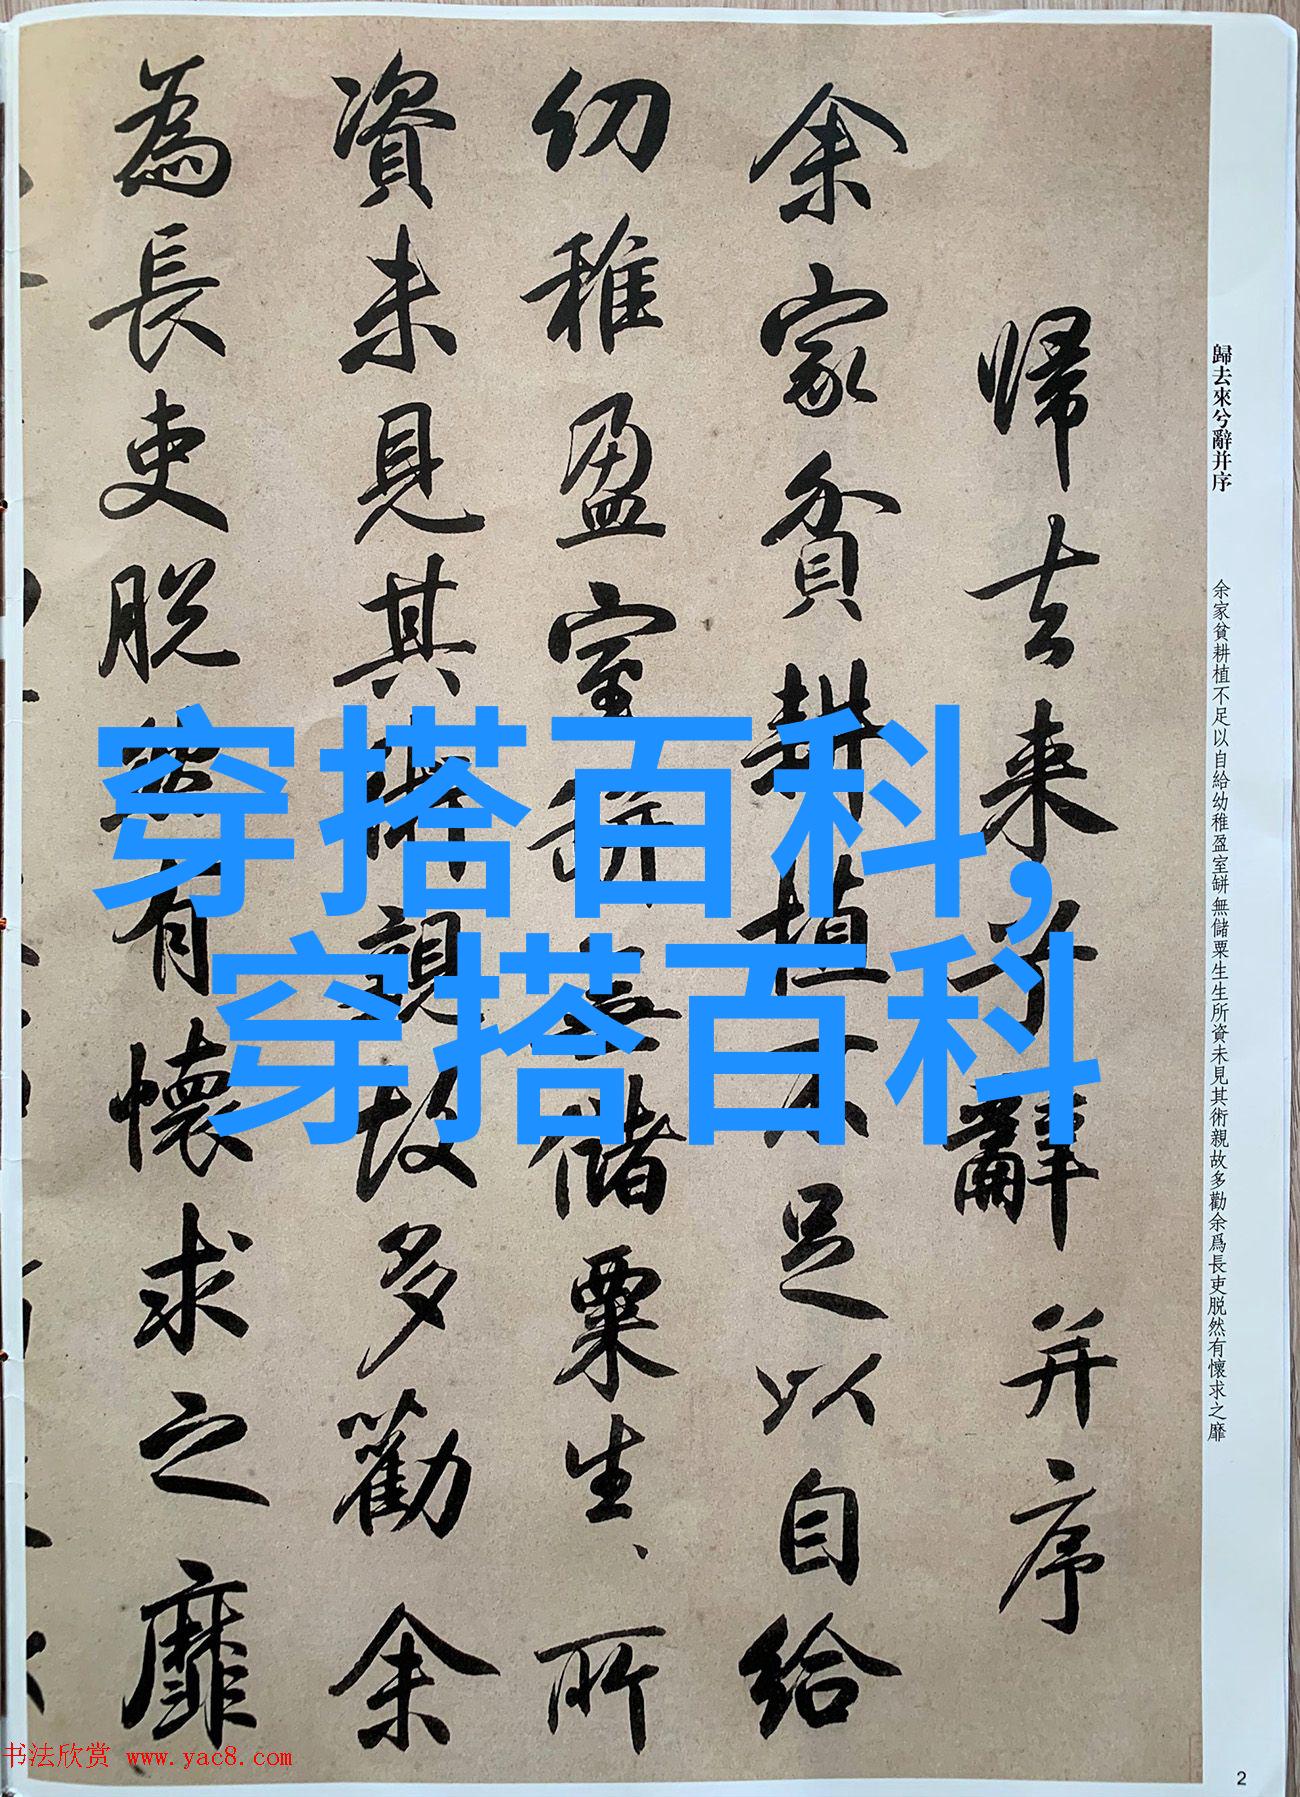 歸去來兮辭并序
余家貧耕植不足以自給幼稚盈室缾無儲粟生生所資未見其術親故多勸余爲長吏脱然有懷求之靡
帰去来兮辭并序
余家貧耕植不足以自給
幼稚盈室缾無儲粟生、所
資未見其術親故多勸余
為長吏脱然有懷求之靡
穿搭百科,
穿搭百科
书法欣赏 www.yac8.com
2